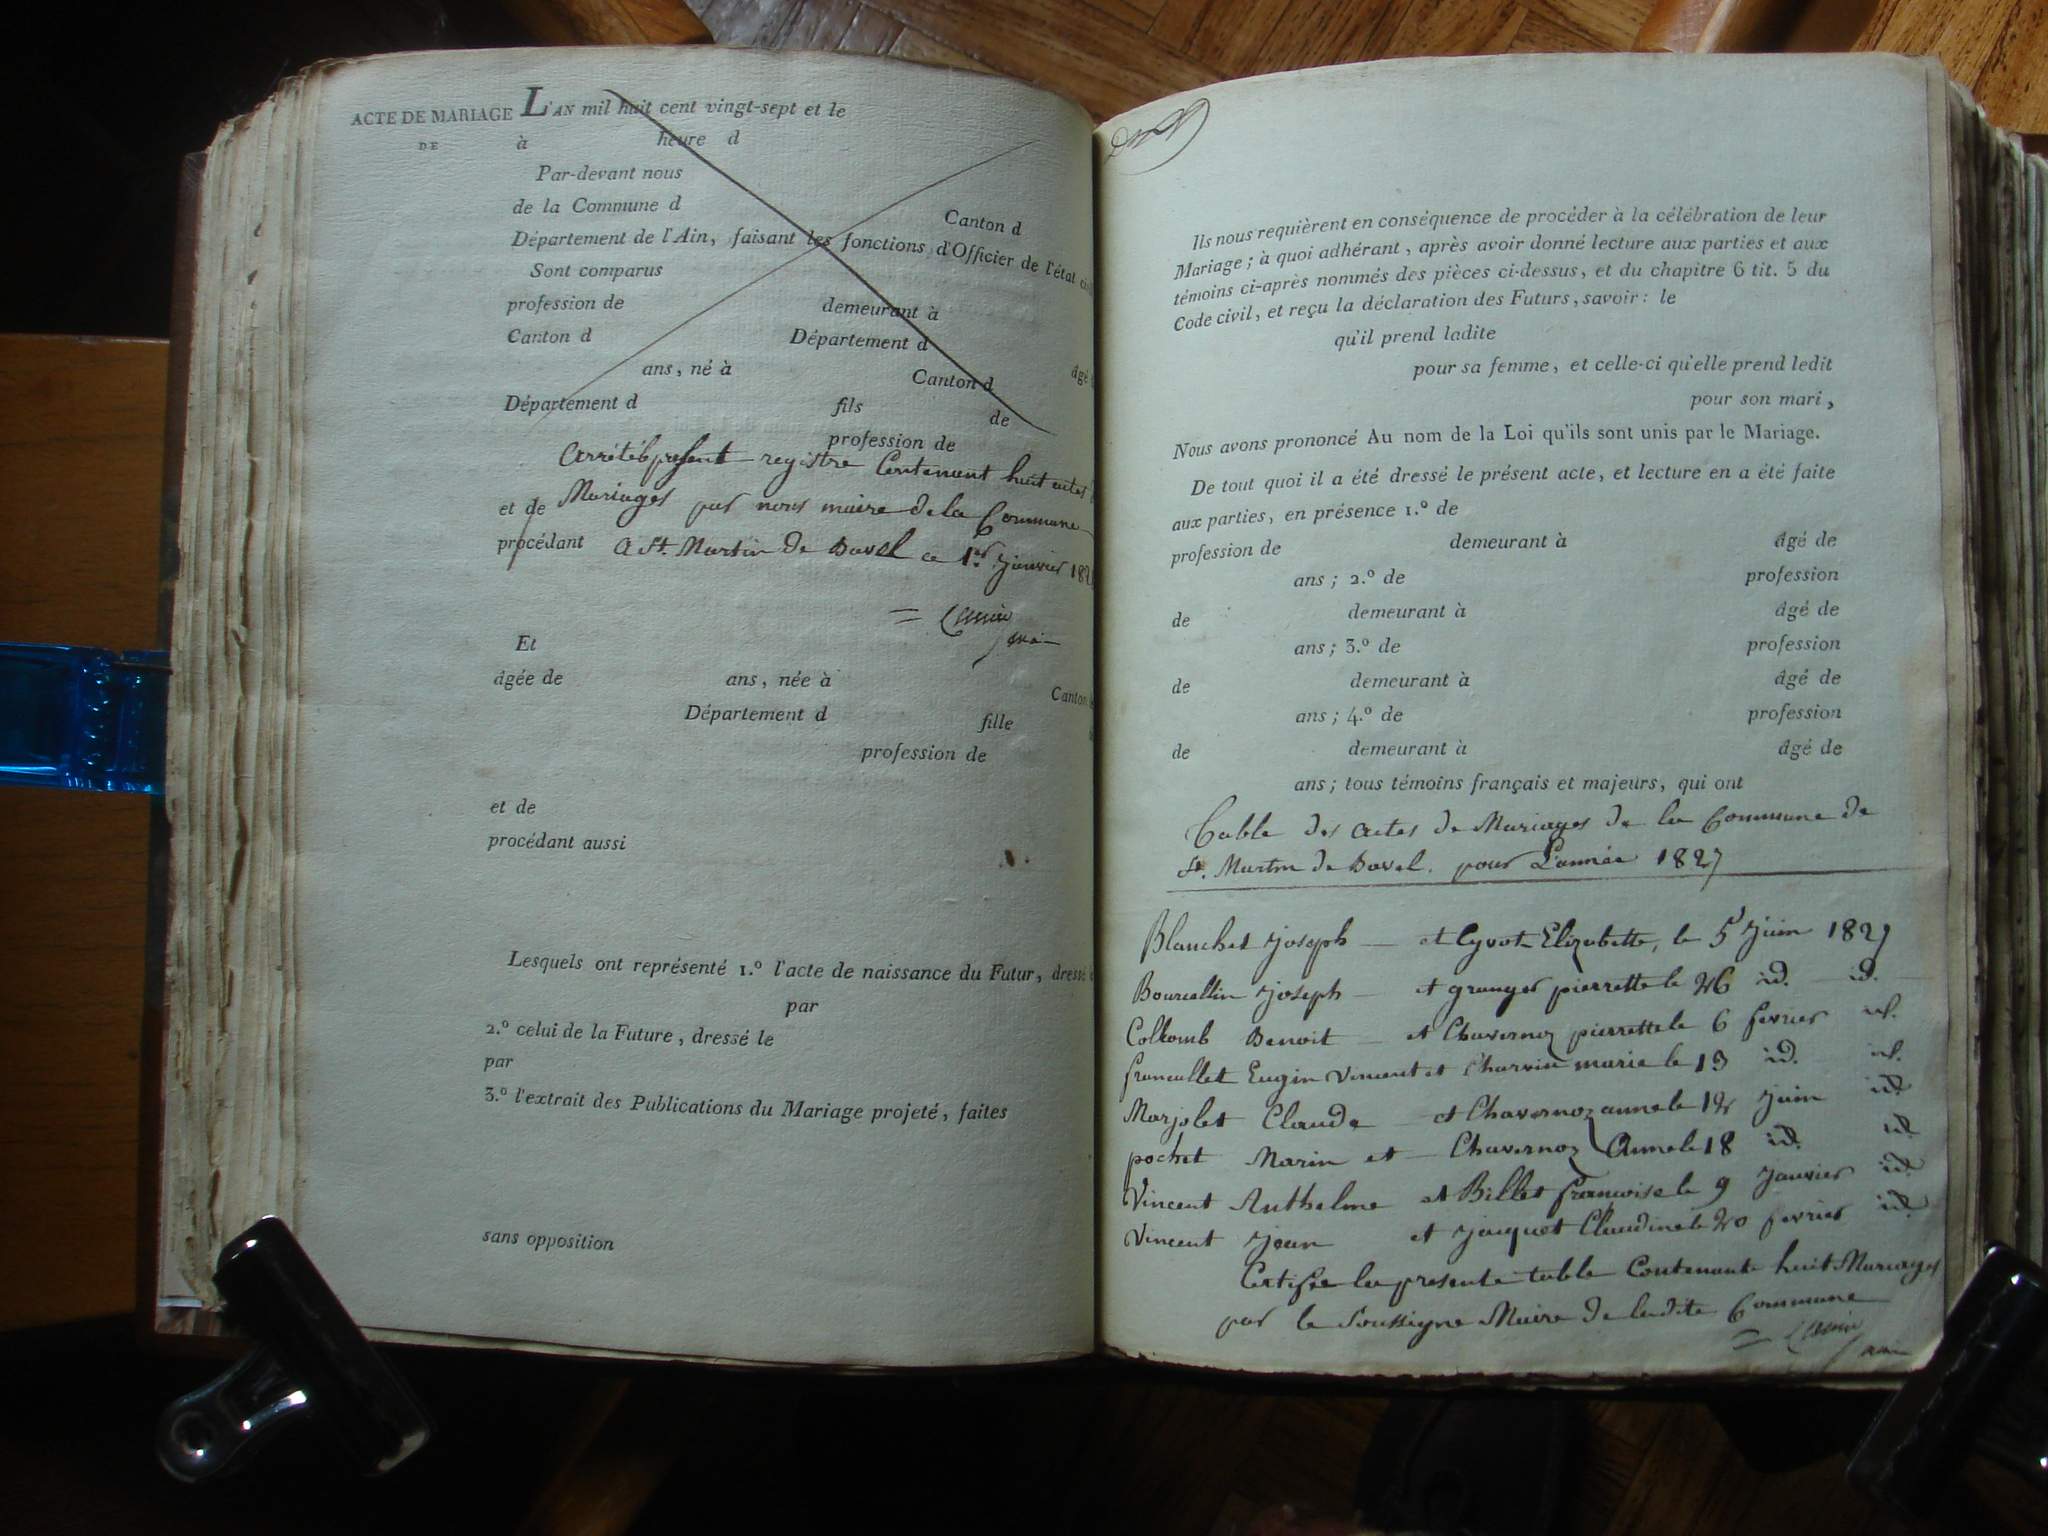 ACTE DE MARIAGE L'AN mil huit cent vingt-sept et le
DE à heure d
Par-devant nous
de la Commune d Canton d
Département de l'Ain, faisant les fonctions d'Officier de l'état
Sont comparus
profession de demeurant à
Canton d Département d
âgé
ans, né à Canton d
Département d fils de
profession de
Arrété le present registre Contenant huit actes
et de Mariages par nous maire de la Commune
procédant A St. Martin De Bavel ce 1er janvier
Et
âgée de ans, née à Canton
Département d fille
profession de
et de
procédant aussi
Lesquels ont représenté 1.º l'acte de naissance du Futur, dressé
par
2.º celui de la Future, dressé le
par
3.º l'extrait des Publications du Mariage projeté, faites
sans opposition
Ils nous requièrent en conséquence de procéder à la célébration de leur
Mariage; à quoi adhérant, après avoir donné lecture aux parties et aux
témoins ci-après nommés des pièces ci-dessus, et du chapitre 6 tit. 5 du
Code civil, et reçu la déclaration des Futurs, savoir: le
qu'il prend ladite
pour sa femme, et celle-ci qu'elle prend ledit
pour son mari,
Nous avons prononcé Au nom de la Loi qu'ils sont unis par le Mariage.
De tout quoi il a été dressé le présent acte, et lecture en a été faite
aux parties, en présence 1.º de
profession de demeurant à âgé de
ans; 2.º de profession
de demeurant à âgé de
ans; 3.º de profession
de demeurant à âgé de
ans; 4.º de profession
de demeurant à âgé de
ans; tous témoins français et majeurs, qui ont
Table des actes de Mariages de la Commune de
St. Martin de Bavel. pour L'année 1827
Blanchet joseph et Cyvot Elizabette, le 5 juin 1827
Bourcellin joseph et granger pierrette le 26 id. id.
Collomb Benoit et Chavernoz pierrette le 6 fevrier id.
francillet Eugin Vincent et Charvin marie le 13 id. id.
Marjolet Claude et Chavernoz anne le 12 juin id.
pochet Marin et Chavernoz Anne le 18 id. id.
Vincent Anthelme et Billet françoise le 9 janvier id.
Vincent jean et jacquet Claudine le 20 fevrier id.
Certifée la presente table Contenante huit Mariages
par le Soussigne Maire de ladite Commune